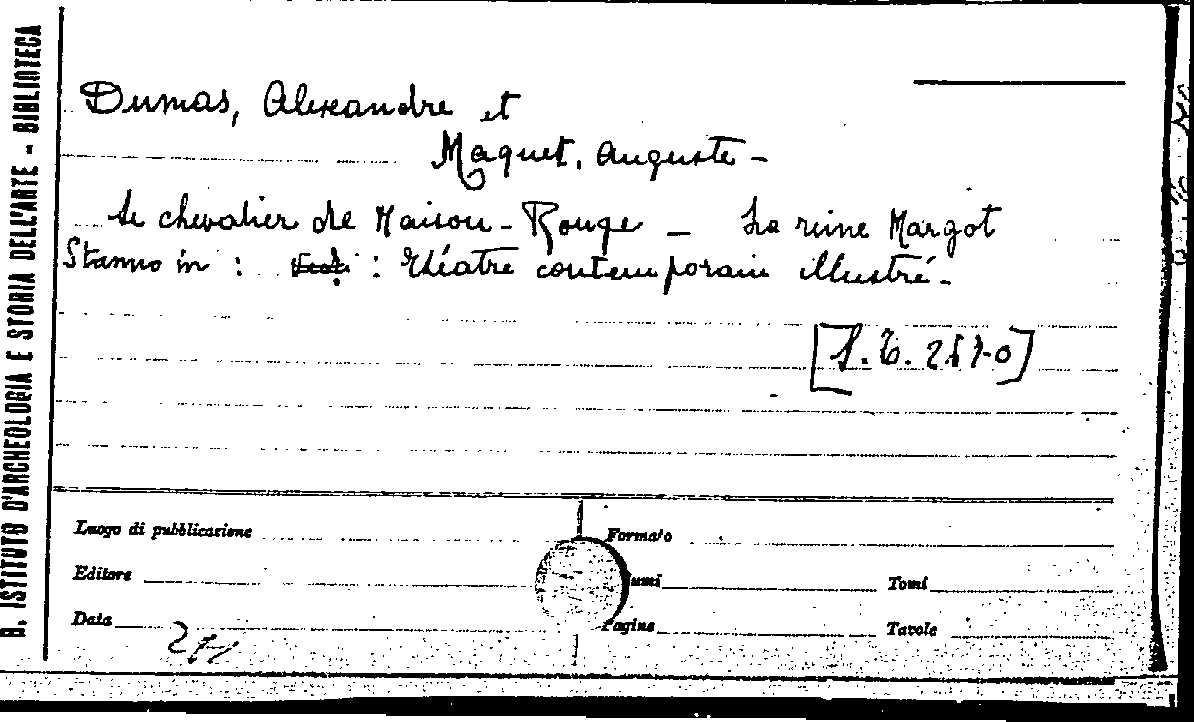 R. ISTITUTO D'ARCHEOLOGIA E STORIA DELL'ARTE - BIBLIOTECA
Dumas, Alexandre et
Maquet, Auguste -
Le chevalier de Maison-Rouge - La reine Margot
Stanno in : : Théatre contemporain illustré -
Luogo di pubblicazione
Formato
Editore
umi
Tomi
Data
Pagine
Tavole